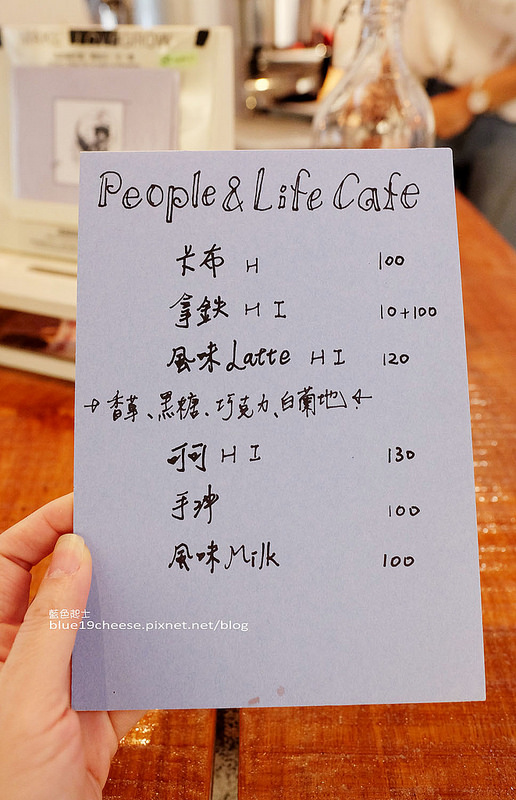 People & Life Cafe
卡布 H 100
拿鉄 H I 10+100
風味Latte H I 120
→香草、黑糖、巧克力、白蘭地←
可可 H I 130
手沖 100
風味Milk 100
藍色起士
blue19cheese.pixnet.net/blog